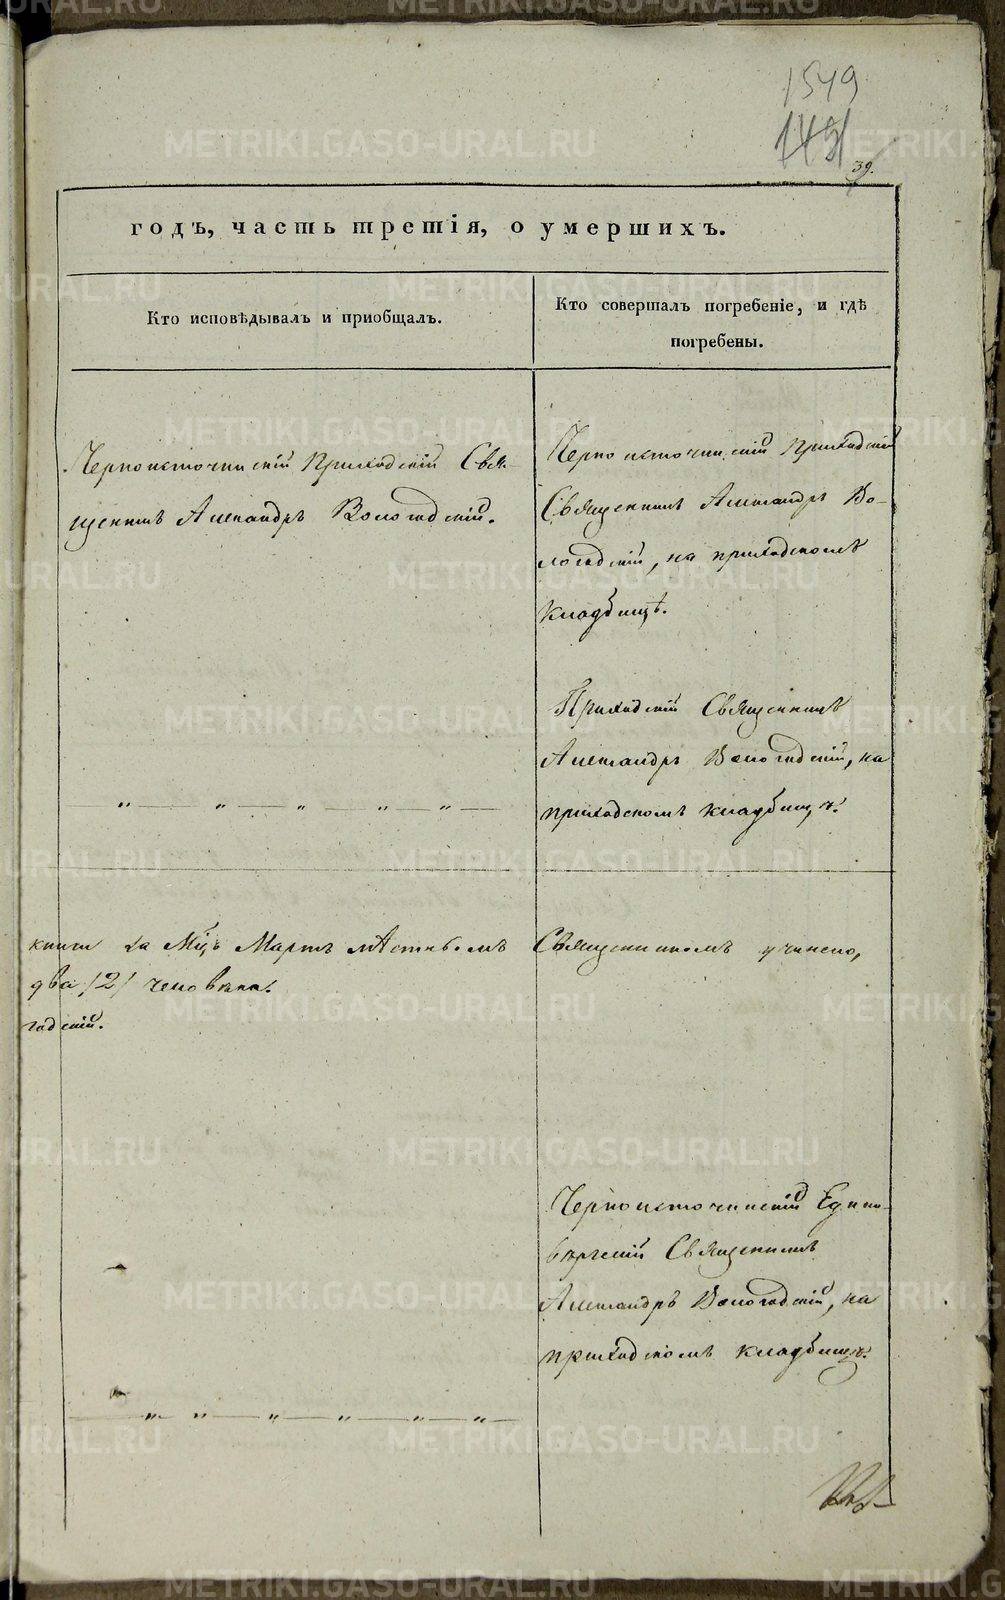 METRIKI.GASO-URAL.RU
1549
145
39.
годъ, часть третія, о умершихъ.
Кто исповѣдывалъ и приобщалъ.
Кто совершалъ погребеніе, и гдѣ
погребены.
Черноисточинскій Приходскій Свя-
щенникъ Александръ Вологодскій.
Черноисточинскій Приходскій
Священникъ Александръ Во-
логодскій, на приходскомъ
кладбищѣ.
Приходскій Священникъ
Александръ Вологодскій, на
приходскомъ кладбищѣ.
" — " — " — " — " —
книги за Мцъ Мартъ мѣстнымъ Священникомъ учинено,
два /2/ человѣка.
годскій.
Черноисточинскій Едино-
вѣрческій Священникъ
Александръ Вологодскій, на
приходскомъ кладбищѣ.
— " — " — " — " — " — " —